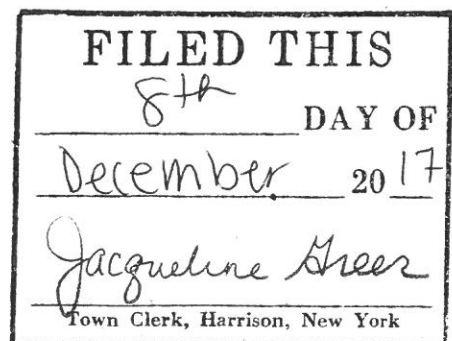 FILED THIS
8th
DAY OF
December 2017
Jacqueline Greer
Town Clerk, Harrison, New York